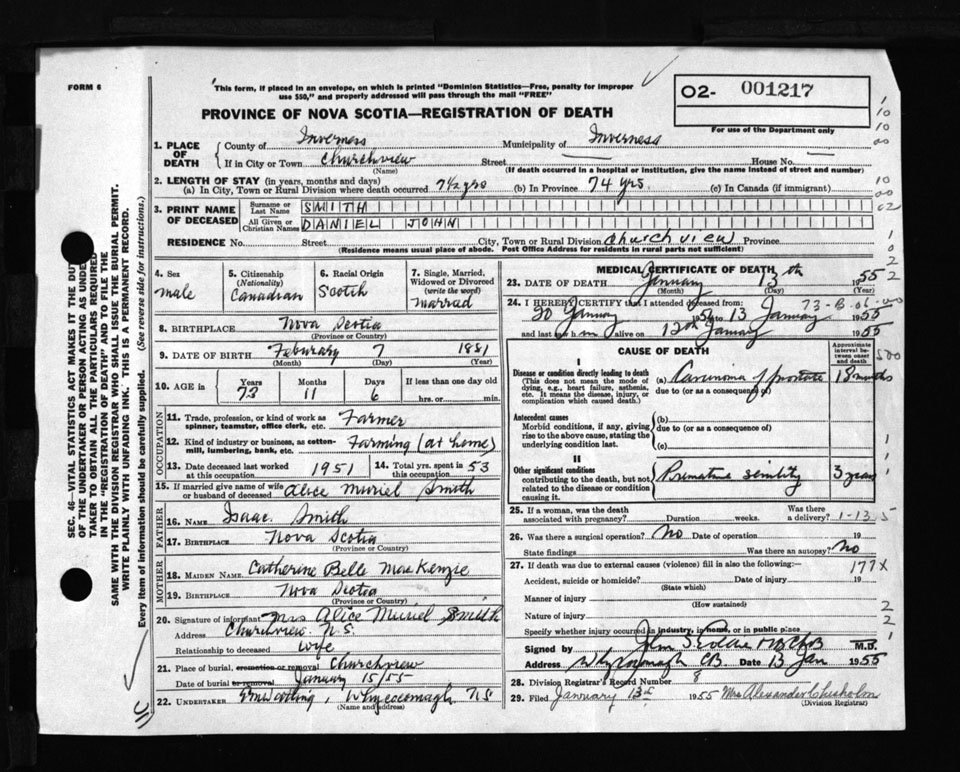 FORM 6
This form, if placed in an envelope, on which is printed "Dominion Statistics—Free, penalty for improper
use $50," and properly addressed will pass through the mail "FREE"
02- 001217
For use of the Department only
PROVINCE OF NOVA SCOTIA—REGISTRATION OF DEATH
SEC. 46—VITAL STATISTICS ACT MAKES IT THE DUTY
OF THE UNDERTAKER OR PERSON ACTING AS UNDER-
TAKER TO OBTAIN ALL THE PARTICULARS REQUIRED
IN THE "REGISTRATION OF DEATH" AND TO FILE THE
SAME WITH THE DIVISION REGISTRAR WHO SHALL ISSUE THE BURIAL PERMIT.
WRITE PLAINLY WITH UNFADING INK. THIS IS A PERMANENT RECORD.
Every item of information should be carefully supplied. (See reverse side for instructions.)
1. PLACE OF DEATH
County of Inverness Municipality of Inverness
If in City or Town Churchview Street House No.
(Name) (If death occurred in a hospital or institution, give the name instead of street and number)
2. LENGTH OF STAY (in years, months and days)
(a) In City, Town or Rural Division where death occurred 74 yrs (b) In Province 74 yrs. (c) In Canada (if immigrant)
3. PRINT NAME OF DECEASED
Surname or Last Name SMITH
All Given or Christian Names DANIEL JOHN
RESIDENCE No. Street City, Town or Rural Division Churchview Province
(Residence means usual place of abode. Post Office Address for residents in rural parts not sufficient)
4. Sex male
5. Citizenship (Nationality) Canadian
6. Racial Origin Scotch
7. Single, Married, Widowed or Divorced (write the word) married
8. BIRTHPLACE Nova Scotia
(Province or Country)
9. DATE OF BIRTH Feburary 7 1881
(Month) (Day) (Year)
10. AGE in Years 73 Months 11 Days 6 If less than one day old
hrs. or min.
OCCUPATION
11. Trade, profession, or kind of work as spinner, teamster, office clerk, etc. Farmer
12. Kind of industry or business, as cotton-mill, lumbering, bank, etc. Farming (at home)
13. Date deceased last worked at this occupation 1951 14. Total yrs. spent in this occupation 53
15. If married give name of wife or husband of deceased Alice Muriel Smith
FATHER
16. NAME Isaac Smith
17. BIRTHPLACE Nova Scotia
(Province or Country)
MOTHER
18. MAIDEN NAME Catherine Belle MacKenzie
19. BIRTHPLACE Nova Scotia
(Province or Country)
20. Signature of informant Mrs Alice Muriel Smith
Address Churchview N.S.
Relationship to deceased Wife
21. Place of burial, cremation or removal Churchview
Date of burial or removal January 15/55
22. UNDERTAKER Whycocomagh N.S
(Name and address)
MEDICAL CERTIFICATE OF DEATH
23. DATE OF DEATH January 13th 1955
(Month) (Day) (Year)
24. I HEREBY CERTIFY that I attended deceased from:
20 January 1954 to 13 January 1955
and last saw him alive on 12th January 1955
CAUSE OF DEATH
Approximate interval between onset and death
I
Disease or condition directly leading to death
(This does not mean the mode of dying, e.g., heart failure, asthenia, etc. It means the disease, injury, or complication which caused death.)
(a) Carcinoma of prostate 18 months
due to (or as a consequence of)
Antecedent causes
Morbid conditions, if any, giving rise to the above cause, stating the underlying condition last.
(b)
due to (or as a consequence of)
(c)
II
Other significant conditions
contributing to the death, but not related to the disease or condition causing it.
Premature senility 3 years
25. If a woman, was the death associated with pregnancy? Duration weeks. Was there a delivery? 1-13 5
26. Was there a surgical operation? No Date of operation 19
State findings Was there an autopsy? No
27. If death was due to external causes (violence) fill in also the following:— 177X
Accident, suicide or homicide? Date of injury 19
(State which)
Manner of injury
(How sustained)
Nature of injury
Specify whether injury occurred in industry, in home, or in public place
Signed by M.D.
Address Whycocomagh CB Date 13 Jan 1955
28. Division Registrar's Record Number 8
29. Filed January 13th 1955 Mrs Alexander Chisholm
(Division Registrar)